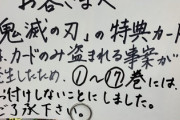 お客さまへ
「鬼滅の刃」の特典カード
は、カードのみ盗まれる事案が
発生したため、①〜⑰巻には、
お付けしないことにしました。
ご了承下さい。